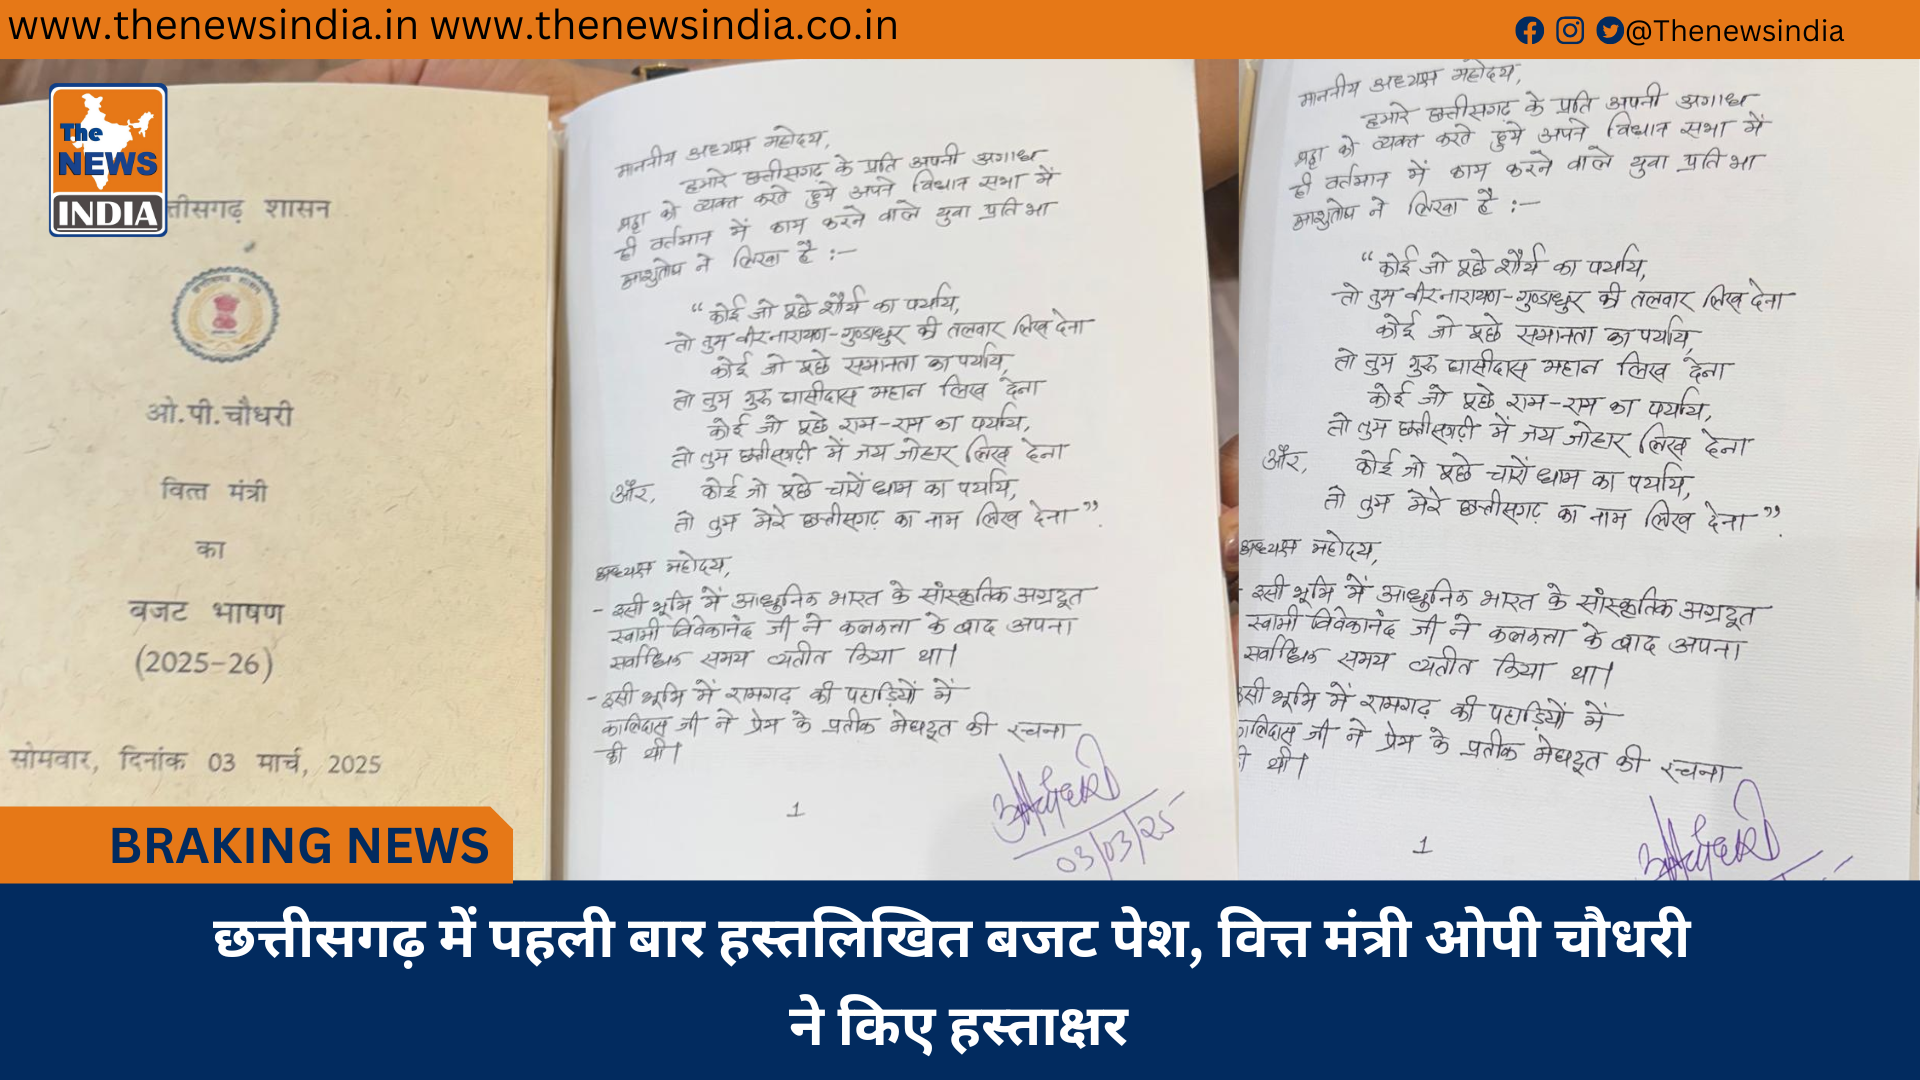 www.thenewsindia.in www.thenewsindia.co.in
@Thenewsindia
The
NEWS
INDIA
त्तीसगढ़ शासन
ओ.पी.चौधरी
वित्त मंत्री
का
बजट भाषण
(2025-26)
सोमवार, दिनांक 03 मार्च, 2025
माननीय अध्यक्ष महोदय,
हमारे छत्तीसगढ़ के प्रति अपनी अगाध
श्रद्धा को व्यक्त करते हुये अपने विधान सभा में
ही वर्तमान में काम करने वाले युवा प्रतिभा
आशुतोष ने लिखा है :-
“कोई जो पूछे शौर्य का पर्याय,
तो तुम वीरनारायण-गुण्डाधुर की तलवार लिख देना
कोई जो पूछे समानता का पर्याय,
तो तुम गुरु घासीदास महान लिख देना
कोई जो पूछे राम-राम का पर्याय,
तो तुम छत्तीसगढ़ी में जय जोहार लिख देना
और, कोई जो पूछे चारों धाम का पर्याय,
तो तुम मेरे छत्तीसगढ़ का नाम लिख देना”.
अध्यक्ष महोदय,
- इसी भूमि में आधुनिक भारत के सांस्कृतिक अग्रदूत
स्वामी विवेकानंद जी ने कलकत्ता के बाद अपना
सर्वाधिक समय व्यतीत किया था।
- इसी भूमि में रामगढ़ की पहाड़ियों में
कालिदास जी ने प्रेम के प्रतीक मेघदूत की रचना
की थी।
1
03/03/25
माननीय अध्यक्ष महोदय,
हमारे छत्तीसगढ़ के प्रति अपनी अगाध
श्रद्धा को व्यक्त करते हुये अपने विधान सभा में
ही वर्तमान में काम करने वाले युवा प्रतिभा
आशुतोष ने लिखा है :-
“कोई जो पूछे शौर्य का पर्याय,
तो तुम वीरनारायण-गुण्डाधुर की तलवार लिख देना
कोई जो पूछे समानता का पर्याय,
तो तुम गुरु घासीदास महान लिख देना
कोई जो पूछे राम-राम का पर्याय,
तो तुम छत्तीसगढ़ी में जय जोहार लिख देना
और, कोई जो पूछे चारों धाम का पर्याय,
तो तुम मेरे छत्तीसगढ़ का नाम लिख देना”.
अध्यक्ष महोदय,
- इसी भूमि में आधुनिक भारत के सांस्कृतिक अग्रदूत
स्वामी विवेकानंद जी ने कलकत्ता के बाद अपना
सर्वाधिक समय व्यतीत किया था।
इसी भूमि में रामगढ़ की पहाड़ियों में
कालिदास जी ने प्रेम के प्रतीक मेघदूत की रचना
ी थी।
1
BRAKING NEWS
छत्तीसगढ़ में पहली बार हस्तलिखित बजट पेश, वित्त मंत्री ओपी चौधरी
ने किए हस्ताक्षर